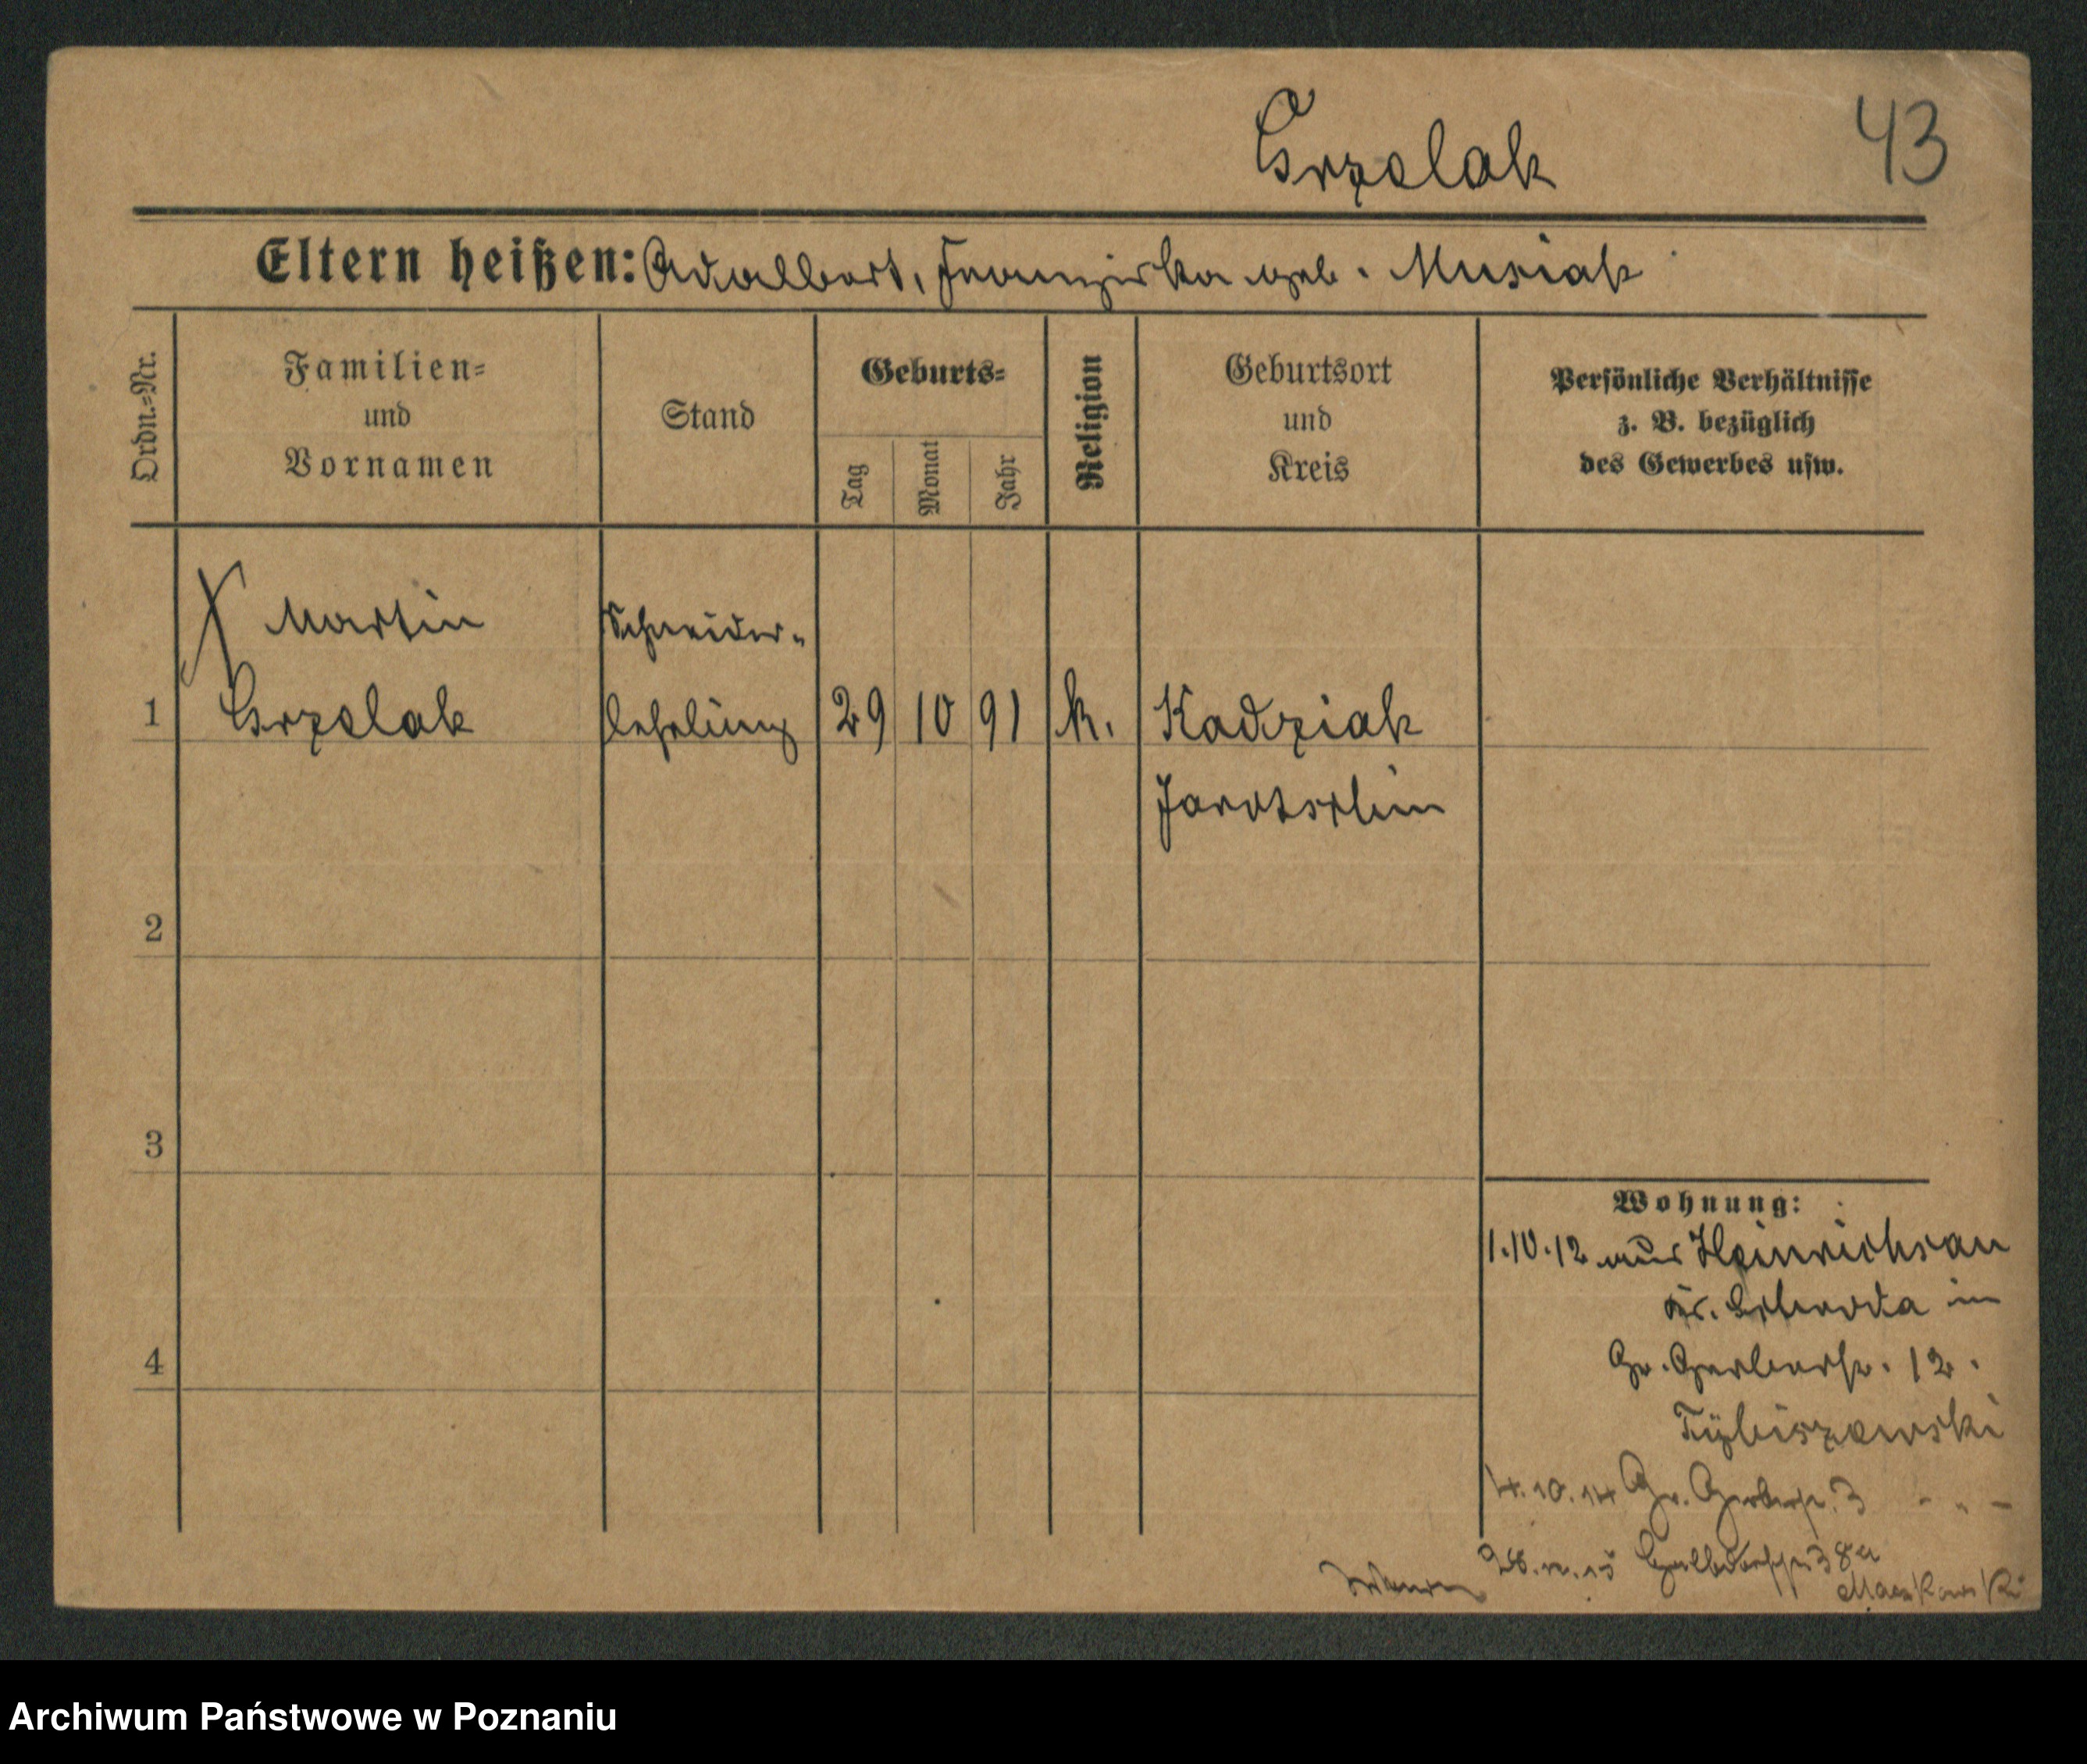 Grzelak 43
Eltern heißen: Adalbert, Franziska geb. Musiak
Ordn.=Nr.
Familien=
und
Vornamen
Stand
Geburts=
Tag
Monat
Jahr
Religion
Geburtsort
und
Kreis
Persönliche Verhältnisse
z. B. bezüglich
des Gewerbes usw.
Martin Schneider-
1 Grzelak lehrling 29 10 91 k. Kadziak
Jarotschin
2
3
4
Wohnung:
1.10.12 aus Heinrichsau
Kr. Schroda in
Gr. Gerberstr. 12.
4.10.14 Gr. Gerberstr. 3 - " -
Archiwum Państwowe w Poznaniu